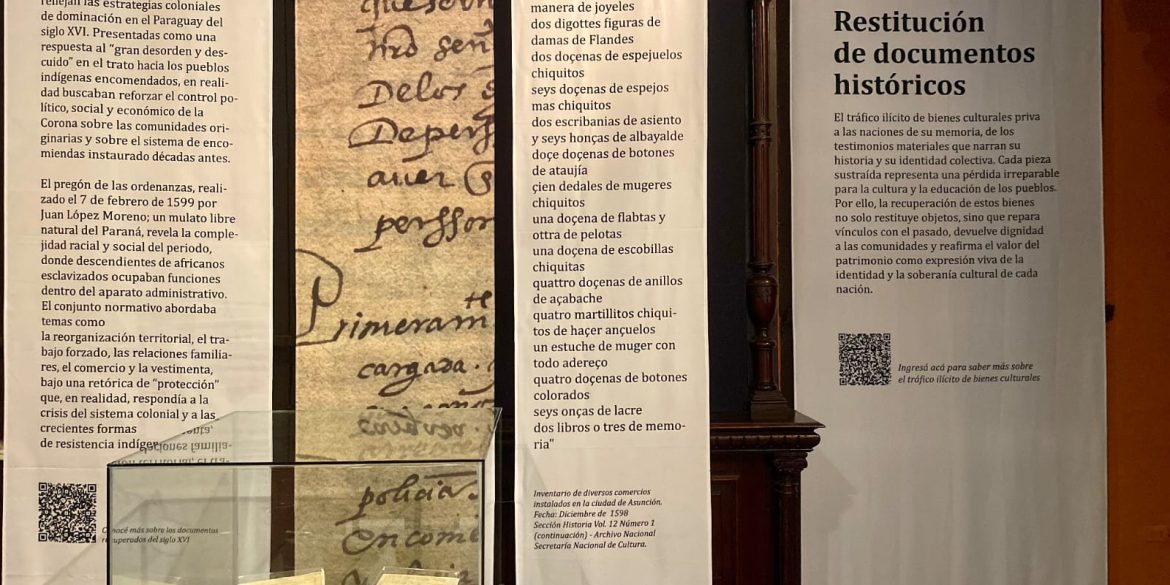 reflejan las estrategias coloniales
de dominación en el Paraguay del
siglo XVI. Presentadas como una
respuesta al “gran desorden y des-
cuido” en el trato hacia los pueblos
indígenas encomendados, en reali-
dad buscaban reforzar el control po-
lítico, social y económico de la
Corona sobre las comunidades ori-
ginarias y sobre el sistema de enco-
miendas instaurado décadas antes.
El pregón de las ordenanzas, reali-
zado el 7 de febrero de 1599 por
Juan López Moreno; un mulato libre
natural del Paraná, revela la comple-
jidad racial y social del periodo,
donde descendientes de africanos
esclavizados ocupaban funciones
dentro del aparato administrativo.
El conjunto normativo abordaba
temas como
la reorganización territorial, el tra-
bajo forzado, las relaciones familia-
res, el comercio y la vestimenta,
bajo una retórica de “protección”
que, en realidad, respondía a la
crisis del sistema colonial y a las
crecientes formas
de resistencia
más sobre los documentos
del siglo XVI
Delos
Primeram te
cargaza.
policia.
manera de joyeles
dos digottes figuras de
damas de Flandes
dos doçenas de espejuelos
chiquitos
seys doçenas de espejos
mas chiquitos
dos escribanias de asiento
y seys honças de albayalde
doçe doçenas de botones
de ataujía
çien dedales de mugeres
chiquitos
una doçena de flabtas y
ottra de pelotas
una doçena de escobillas
chiquitas
quattro doçenas de anillos
de açabache
quatro martillitos chiqui-
tos de haçer ançuelos
un estuche de muger con
todo adereço
quatro doçenas de botones
colorados
seys onças de lacre
dos libros o tres de memo-
ria”
Inventario de diversos comercios
instalados en la ciudad de Asunción.
Fecha: Diciembre de 1598
Sección Historia Vol. 12 Número 1
(continuación) - Archivo Nacional
Secretaría Nacional de Cultura.
Restitución
de documentos
históricos
El tráfico ilícito de bienes culturales priva
a las naciones de su memoria, de los
testimonios materiales que narran su
historia y su identidad colectiva. Cada pieza
sustraída representa una pérdida irreparable
para la cultura y la educación de los pueblos.
Por ello, la recuperación de estos bienes
no solo restituye objetos, sino que repara
vínculos con el pasado, devuelve dignidad
a las comunidades y reafirma el valor del
patrimonio como expresión viva de la
identidad y la soberanía cultural de cada
nación.
Ingresá acá para saber más sobre
el tráfico ilícito de bienes culturales